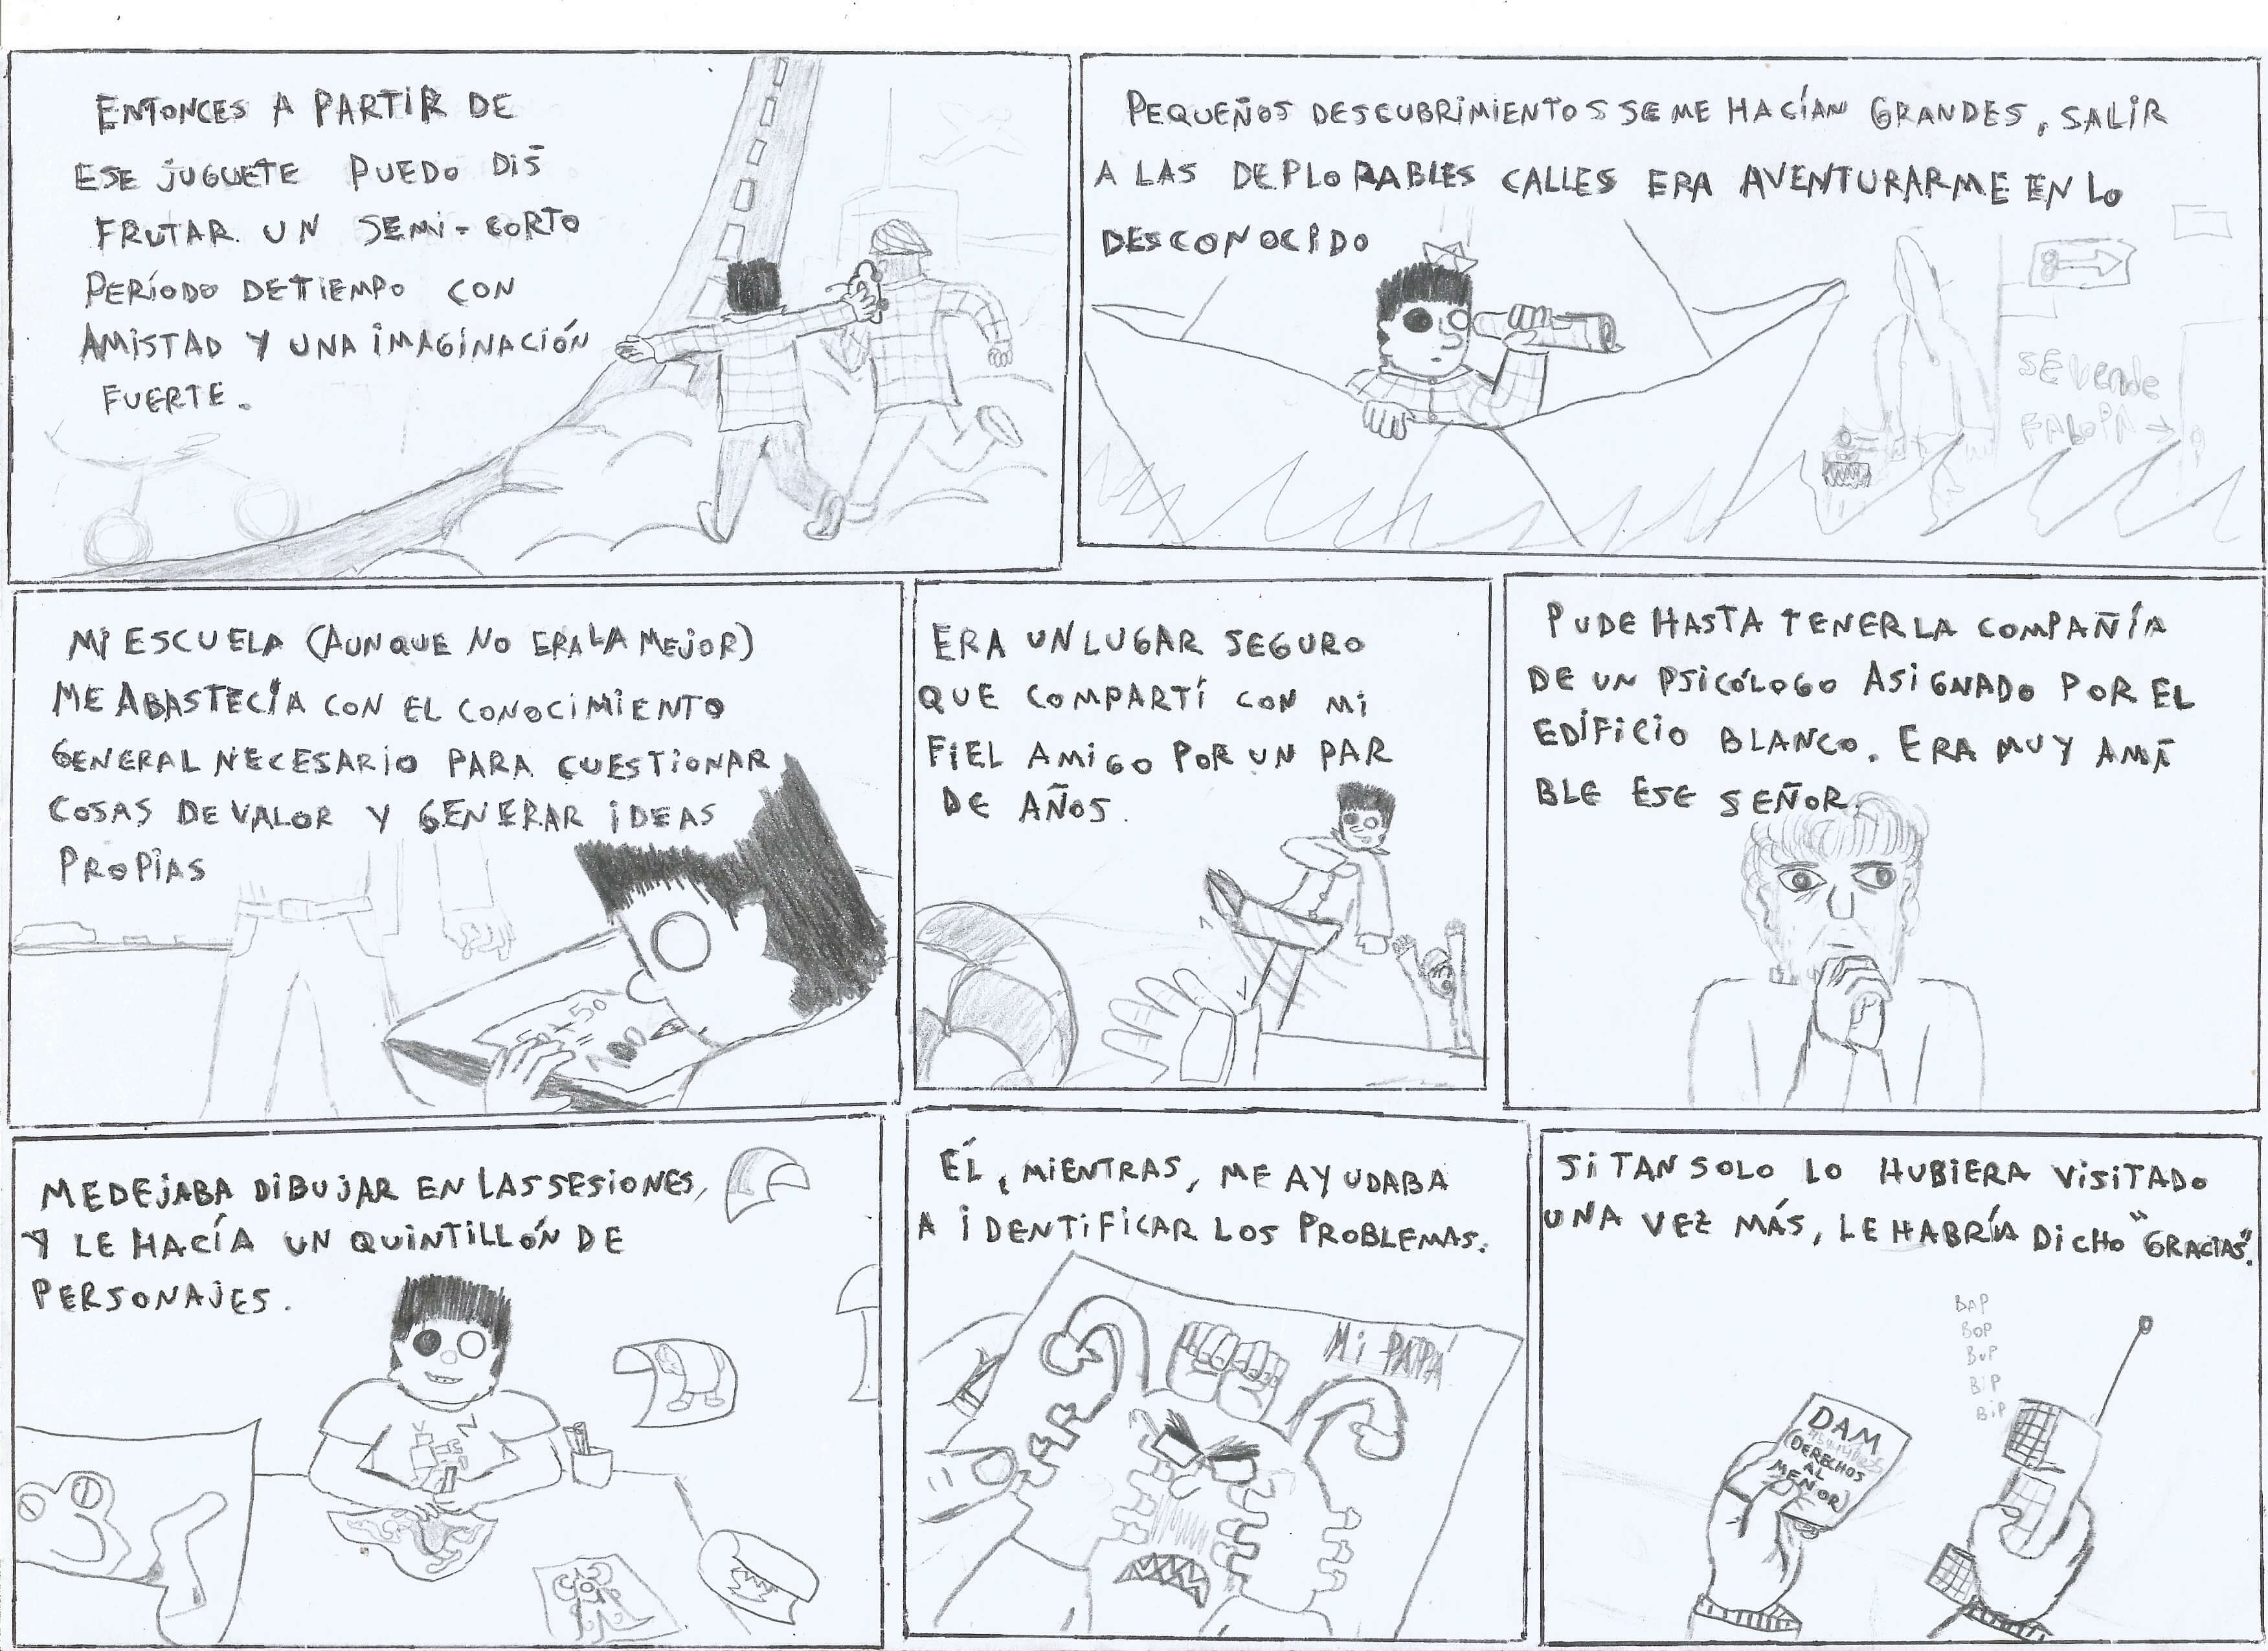 ENTONCES A PARTIR DE
ESE JUGUETE PUEDO DIS
FRUTAR UN SEMI-CORTO
PERÍODO DE TIEMPO CON
AMISTAD Y UNA IMAGINACIÓN
FUERTE.
PEQUEÑOS DESCUBRIMIENTOS SE ME HACÍAN GRANDES, SALIR
A LAS DEPLORABLES CALLES ERA AVENTURARME EN LO
DESCONOCIDO
SE Vende
FALOPA →
MI ESCUELA (AUNQUE NO ERA LA MEJOR)
ME ABASTECÍA CON EL CONOCIMIENTO
GENERAL NECESARIO PARA CUESTIONAR
COSAS DE VALOR Y GENERAR IDEAS
PROPIAS
50+50
100
ERA UN LUGAR SEGURO
QUE COMPARTÍ CON MI
FIEL AMIGO POR UN PAR
DE AÑOS.
PUDE HASTA TENER LA COMPAÑÍA
DE UN PSICÓLOGO ASIGNADO POR EL
EDIFICIO BLANCO. ERA MUY AMA
BLE ESE SEÑOR.
ME DEJABA DIBUJAR EN LAS SESIONES,
Y LE HACÍA UN QUINTILLÓN DE
PERSONAJES.
ÉL, MIENTRAS, ME AYUDABA
A IDENTIFICAR LOS PROBLEMAS.
Mi PAPÁ
SI TAN SOLO LO HUBIERA VISITADO
UNA VEZ MÁS, LE HABRÍA DICHO "GRACIAS".
BAP
BOP
BUP
BIP
BIP
DAM
(DERECHOS
AL
MENOR)